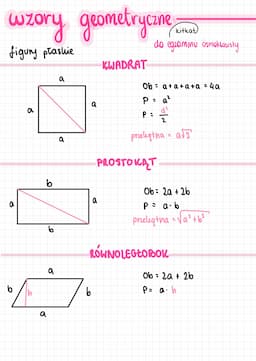 wzory geometryczne
(kitkat)
figury płaskie
do egzaminu ósmoklasisty
KWADRAT
a
a
a
a
Ob = a+a+a+a = 4a
P = a²
P = d²/2
przekątna = a√2
PROSTOKĄT
b
a
a
b
Ob = 2a + 2b
P = a·b
przekątna = √a²+b²
RÓWNOLEGŁOBOK
a
b
h
b
a
Ob = 2a + 2b
P = a·h